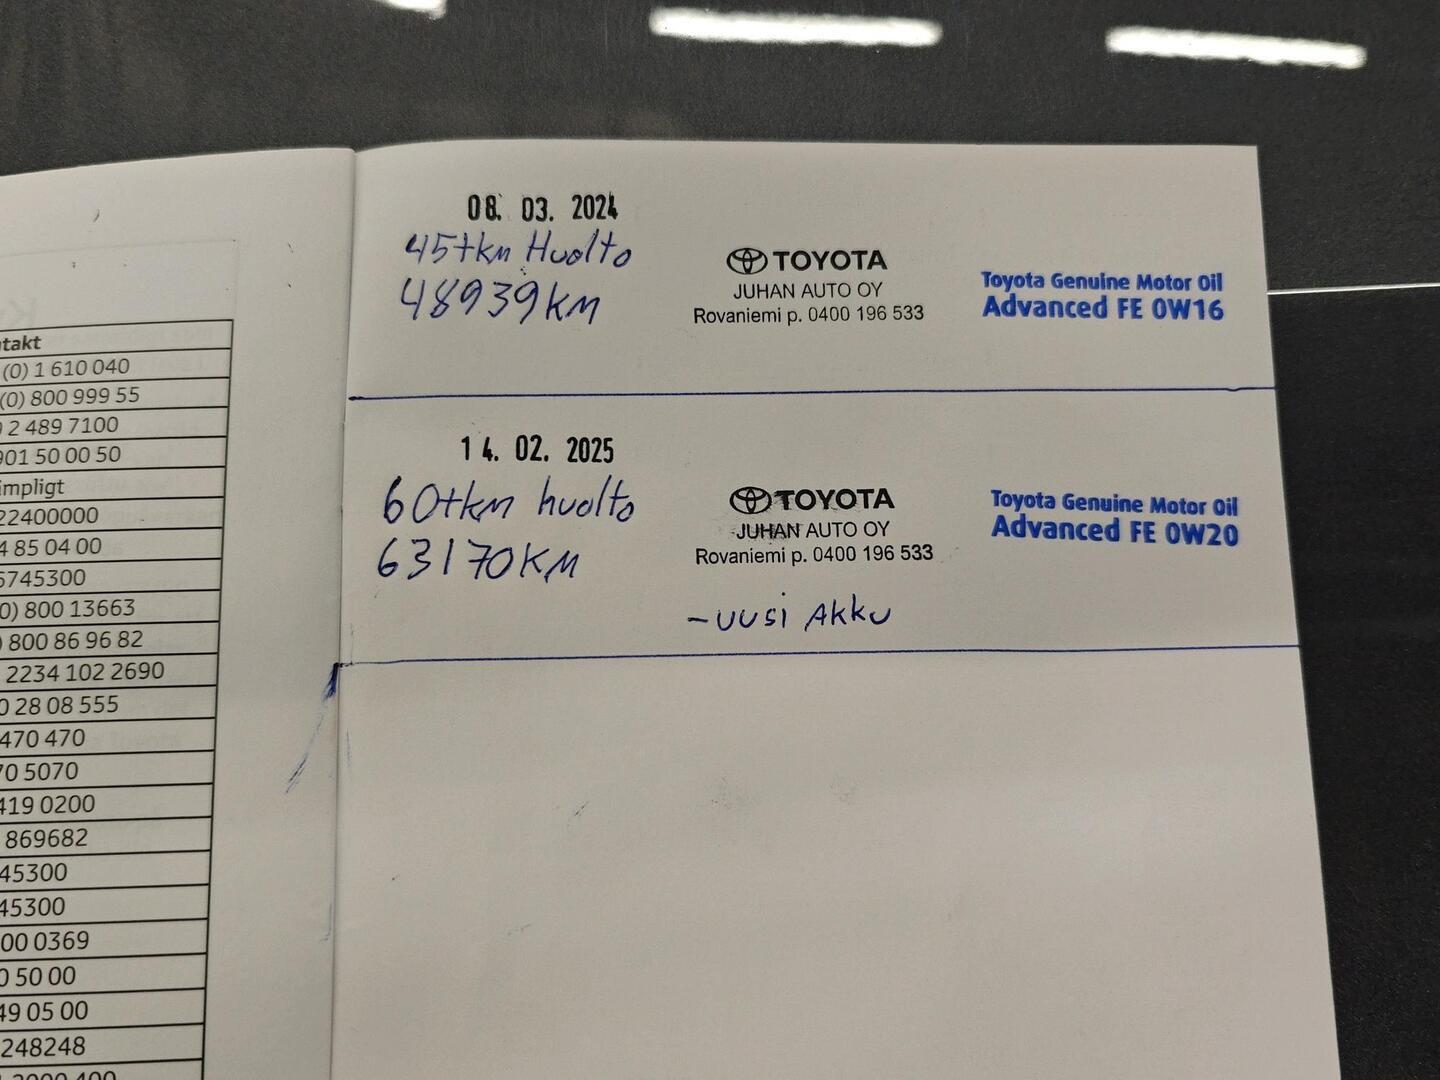 ntakt
(0) 1 610 040
(0) 800 999 55
2 489 7100
901 50 00 50
impligt
22400000
4 85 04 00
6745300
0) 800 13663
) 800 86 96 82
2234 102 2690
0 28 08 555
470 470
70 5070
419 0200
869682
45300
45300
00 0369
0 50 00
49 05 00
248248
08. 03. 2024
45tkm Huolto
48939km
TOYOTA
JUHAN AUTO OY
Rovaniemi p. 0400 196 533
Toyota Genuine Motor Oil
Advanced FE 0W16
14. 02. 2025
60tkm huolto
63170KM
TOYOTA
JUHAN AUTO OY
Rovaniemi p. 0400 196 533
-UUSi AKKU
Toyota Genuine Motor Oil
Advanced FE 0W20